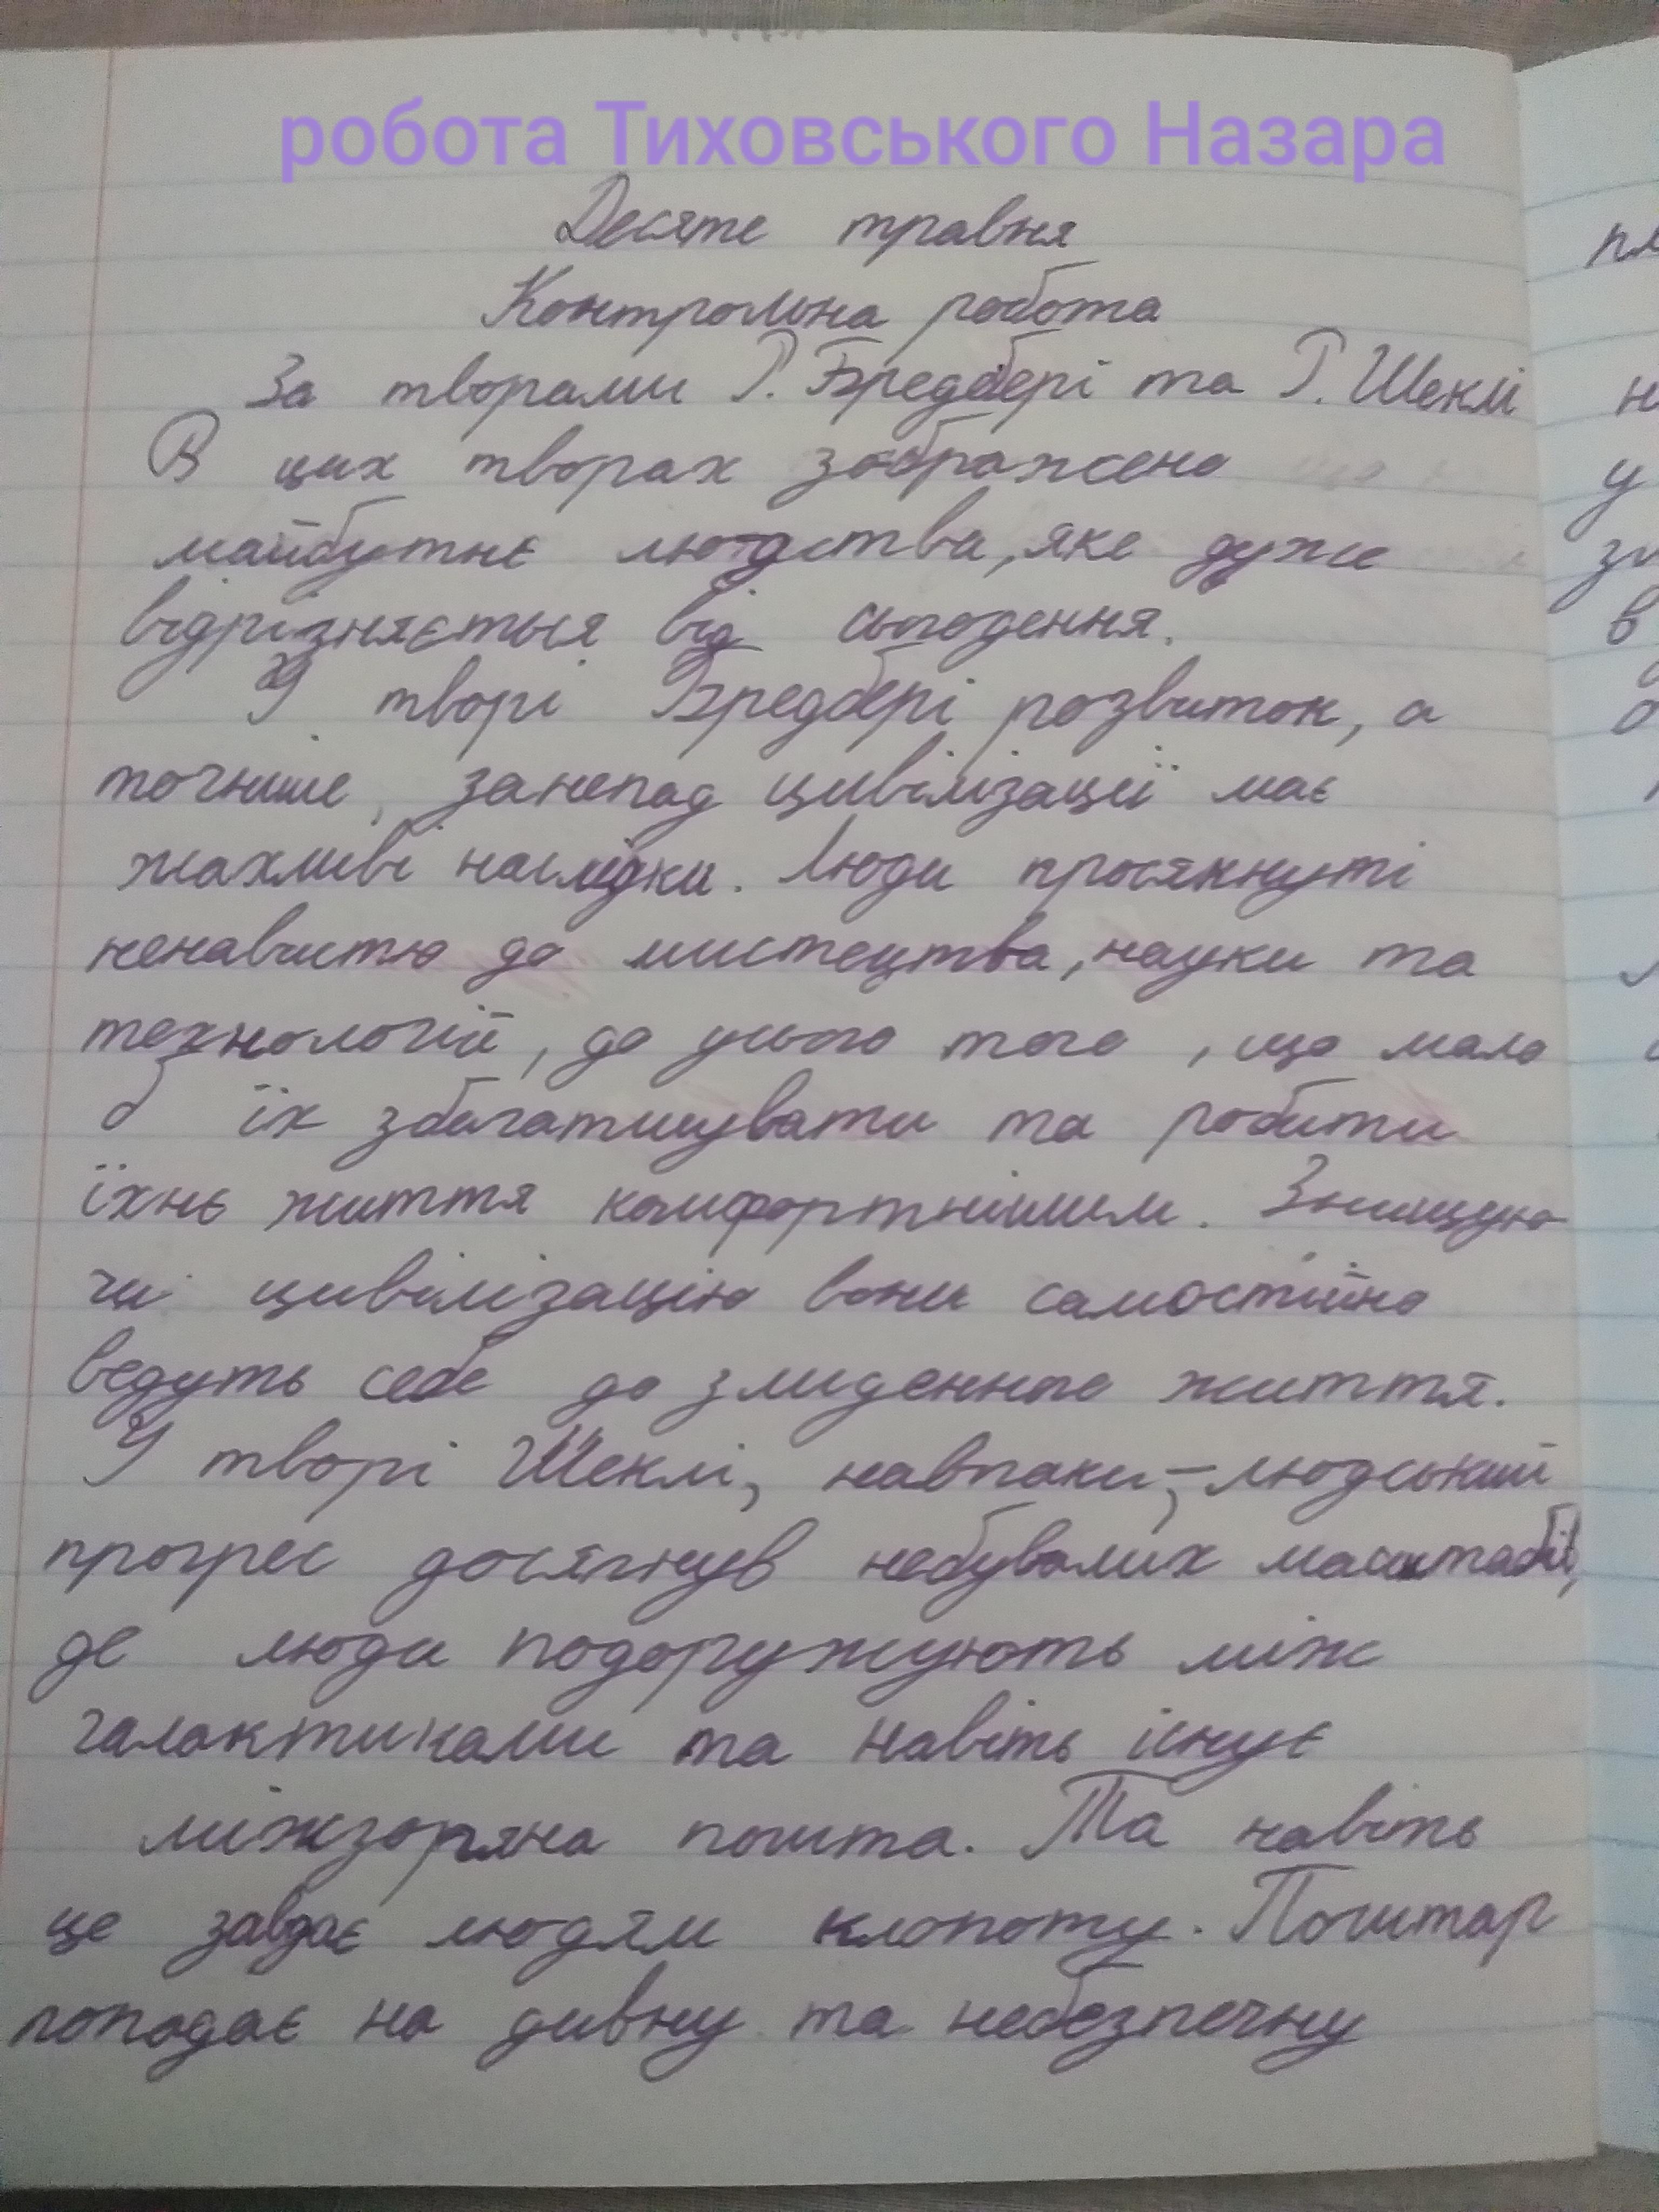 робота Тиховського Назара
Десяте травня
Контрольна робота
За творами Р. Бредбері та Р. Шеклі
В цих творах зображено
майбутнє людства, яке дуже
відрізняється від сьогодення.
У творі Бредбері розвиток, а
точніше, занепад цивілізації має
жахливі наслідки. Люди просякнуті
ненавистю до мистецтва, науки та
технологій, до усього того, що мало
б їх збагатшувати та робити
їхнє життя комфортнішим. Знищую
чи цивілізацію вони самостійно
ведуть себе до злиденного життя.
У творі Шеклі, навпаки, – людський
прогрес досягнув небувалих масштабів,
де люди подоружують між
галактиками та навіть існує
міжзоряна пошта. Та навіть
це завдає людям клопоту. Поштар
попадає на дивну та небезпечну